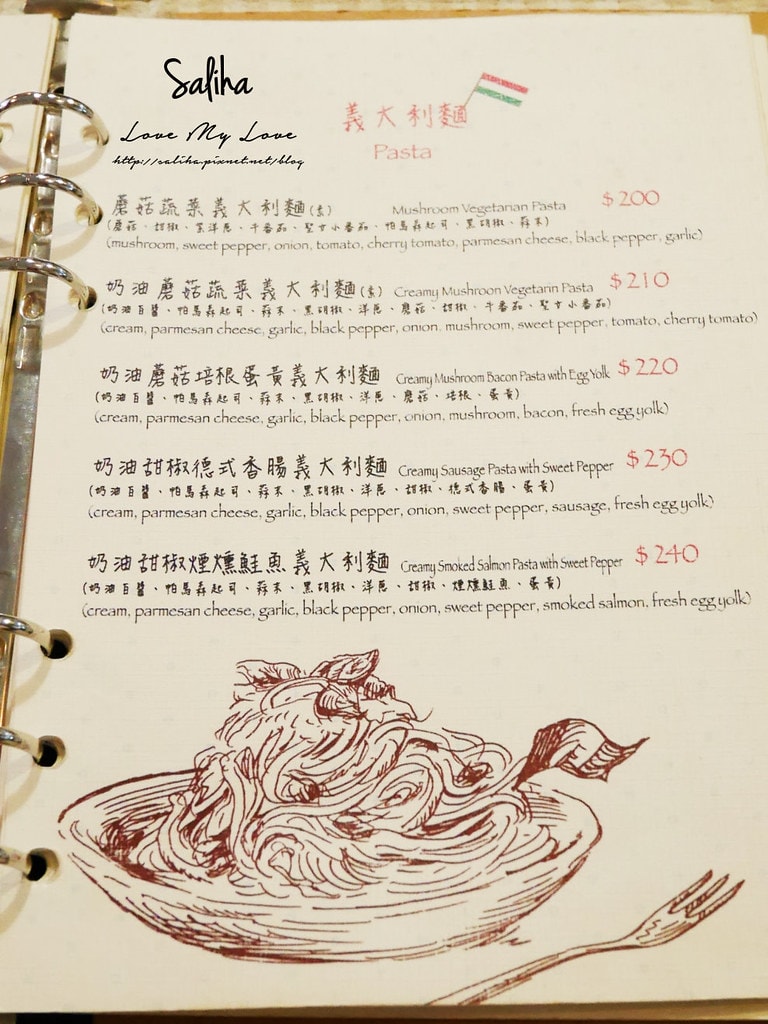 Saliha
Love My Love
http://saliha.pixnet.net/blog
義大利麵
Pasta
蘑菇蔬菜義大利麵(素) Mushroom Vegetarian Pasta $200
(蘑菇、甜椒、黑洋蔥、牛番茄、聖女小番茄、帕馬森起司、黑胡椒、蒜末)
(mushroom, sweet pepper, onion, tomato, cherry tomato, parmesan cheese, black pepper, garlic)
奶油蘑菇蔬菜義大利麵(素) Creamy Mushroon Vegetarin Pasta $210
(奶油白醬、帕馬森起司、蒜末、黑胡椒、洋蔥、蘑菇、甜椒、牛番茄、聖女小番茄)
(cream, parmesan cheese, garlic, black pepper, onion. mushroom, sweet pepper, tomato, cherry tomato)
奶油蘑菇培根蛋黃義大利麵 Creamy Mushroom Bacon Pasta with Egg Yolk $220
(奶油白醬、帕馬森起司、蒜末、黑胡椒、洋蔥、蘑菇、培根、蛋黃)
(cream, parmesan cheese, garlic, black pepper, onion, mushroom, bacon, fresh egg yolk)
奶油甜椒德式香腸義大利麵 Creamy Sausage Pasta with Sweet Pepper $230
(奶油白醬、帕馬森起司、蒜末、黑胡椒、洋蔥、甜椒、德式香腸、蛋黃)
(cream, parmesan cheese, garlic, black pepper, onion, sweet pepper, sausage, fresh egg yolk)
奶油甜椒煙燻鮭魚義大利麵 Creamy Smoked Salmon Pasta with Sweet Pepper $240
(奶油白醬、帕馬森起司、蒜末、黑胡椒、洋蔥、甜椒、煙燻鮭魚、蛋黃)
(cream, parmesan cheese, garlic, black pepper, onion, sweet pepper, smoked salmon, fresh egg yolk)